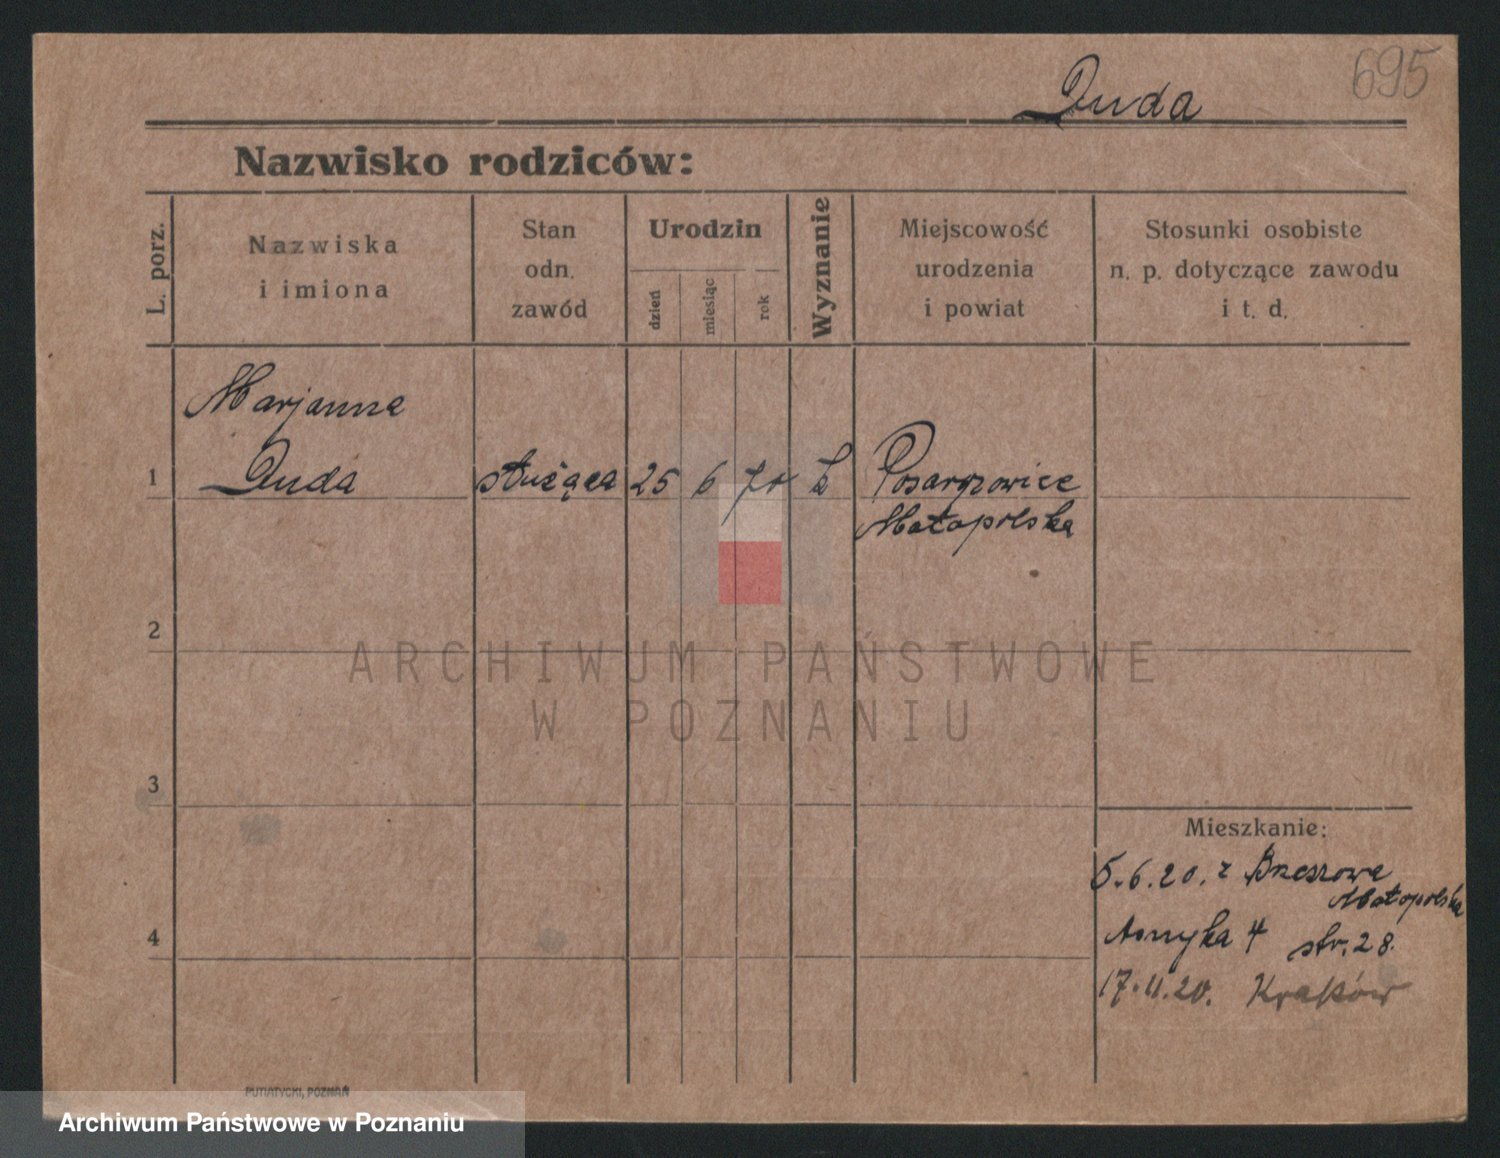 695
Duda
Nazwisko rodziców:
L. porz.
Nazwiska
i imiona
Stan
odn.
zawód
Urodzin
dzień
miesiąc
rok
Wyznanie
Miejscowość
urodzenia
i powiat
Stosunki osobiste
n. p. dotyczące zawodu
i t. d.
Marjanna
1 Duda służąca 25 6
Małopolska
2
ARCHIWUM PAŃSTWOWE
W POZNANIU
3
Mieszkanie:
5.6.20. z
Małopolska
4
4 str. 28.
17.11.20. Kraków
PUTIATYCKI, POZNAŃ
Archiwum Państwowe w Poznaniu